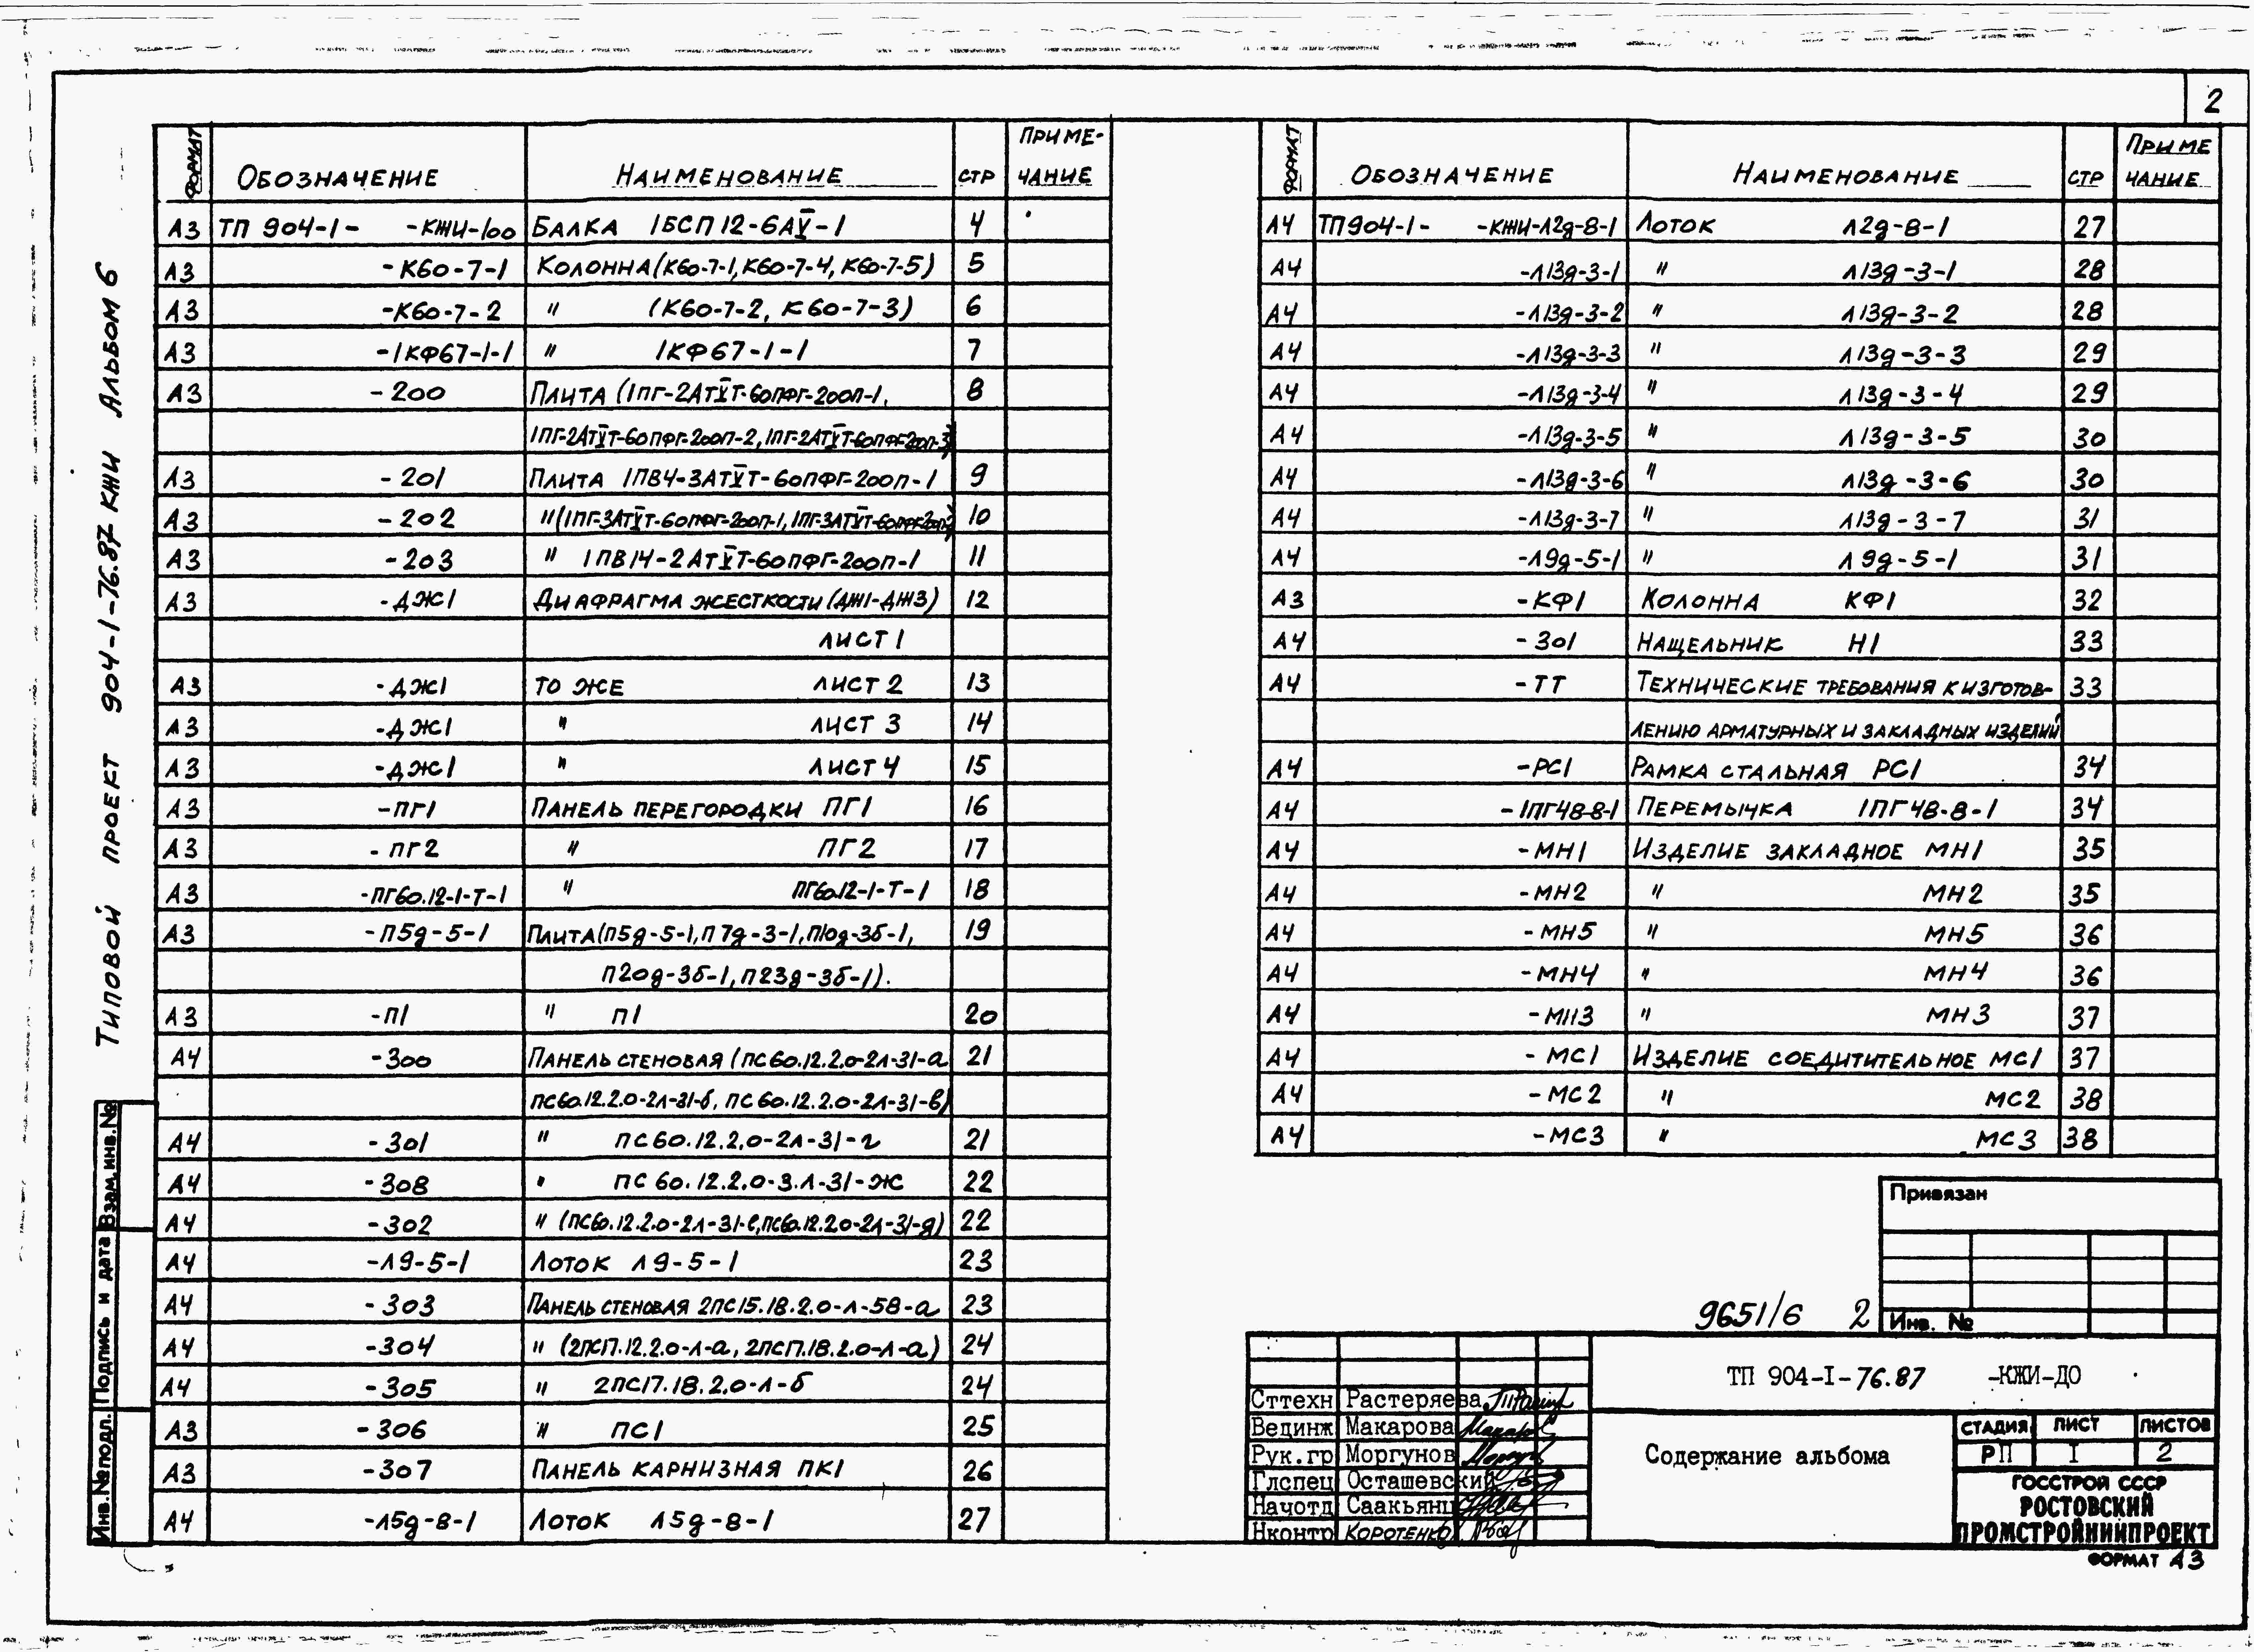 2
Типовой проект 904-1-76.87 КЖИ Альбом 6
Формат Обозначение Наименование стр Приме-чание
А3 ТП 904-1- -КЖИ-100 Балка 1БСП12-6АV-1 4
А3 -К60-7-1 Колонна (К60-7-1, К60-7-4, К60-7-5) 5
А3 -К60-7-2 " (К60-7-2, К60-7-3) 6
А3 -1КФ67-1-1 " 1КФ67-1-1 7
А3 -200 Плита (1ПГ-2АтVТ-60ПФГ-200П-1, 8
1ПГ-2АтVТ-60ПФГ-200П-2, 1ПГ-2АтVТ-60ПФГ-200П-3)
А3 -201 Плита 1ПВ4-3АтVТ-60ПФГ-200П-1 9
А3 -202 " (1ПГ-3АтVТ-60ПФГ-200П-1, 1ПГ-3АтVТ-60ПФГ-200П-2) 10
А3 -203 " 1ПВ14-2АтVТ-60ПФГ-200П-1 11
А3 -ДЖ1 Диафрагма жесткости (ДЖ1-ДЖ3) 12
лист 1
А3 -ДЖ1 То же лист 2 13
А3 -ДЖ1 " лист 3 14
А3 -ДЖ1 " лист 4 15
А3 -ПГ1 Панель перегородки ПГ1 16
А3 -ПГ2 " ПГ2 17
А3 -ПГ60.12-1-Т-1 " ПГ60.12-1-Т-1 18
А3 -П5д-5-1 Плита (П5д-5-1, П7д-3-1, П10д-3б-1, 19
П20д-3б-1, П23д-3б-1).
А3 -П1 " П1 20
А4 -300 Панель стеновая (ПС60.12.2.0-2Л-31-а 21
ПС60.12.2.0-2Л-31-б, ПС60.12.2.0-2Л-31-в)
А4 -301 " ПС60.12.2.0-2Л-31-г 21
А4 -308 " ПС60.12.2.0-3.Л-31-ж 22
А4 -302 " (ПС60.12.2.0-2Л-31-е, ПС60.12.2.0-2Л-31-д) 22
А4 -Л9-5-1 Лоток Л9-5-1 23
А4 -303 Панель стеновая 2ПС15.18.2.0-Л-58-а 23
А4 -304 " (2ПС17.12.2.0-Л-а, 2ПС17.18.2.0-Л-а) 24
А4 -305 " 2ПС17.18.2.0-Л-б 24
А3 -306 " ПС1 25
А3 -307 Панель карнизная ПК1 26
А4 -Л5д-8-1 Лоток Л5д-8-1 27
Формат Обозначение Наименование стр Приме чание
А4 ТП904-1- -КЖИ-Л2д-8-1 Лоток Л2д-8-1 27
А4 -Л13д-3-1 " Л13д-3-1 28
А4 -Л13д-3-2 " Л13д-3-2 28
А4 -Л13д-3-3 " Л13д-3-3 29
А4 -Л13д-3-4 " Л13д-3-4 29
А4 -Л13д-3-5 " Л13д-3-5 30
А4 -Л13д-3-6 " Л13д-3-6 30
А4 -Л13д-3-7 " Л13д-3-7 31
А4 -Л9д-5-1 " Л9д-5-1 31
А3 -КФ1 Колонна КФ1 32
А4 -301 Нащельник Н1 33
А4 -ТТ Технические требования к изготов- 33
лению арматурных и закладных изделий
А4 -РС1 Рамка стальная РС1 34
А4 -1ПГ48-8-1 Перемычка 1ПГ48-8-1 34
А4 -МН1 Изделие закладное МН1 35
А4 -МН2 " МН2 35
А4 -МН5 " МН5 36
А4 -МН4 " МН4 36
А4 -МН3 " МН3 37
А4 -МС1 Изделие соедитительное МС1 37
А4 -МС2 " МС2 38
А4 -МС3 " МС3 38
Привязан
Инв. №
9651/6 2
ТП 904-I-76.87 -КЖИ-ДО
Сттехн Растеряева
Вединж Макарова
Рук.гр Моргунов
Глспец Осташевский
Начотд Саакьянц
Нконтр Коротенко
Содержание альбома
стадия лист листов
РП I 2
ГОССТРОЙ СССР
РОСТОВСКИЙ
ПРОМСТРОЙНИИПРОЕКТ
формат А3
Взам.инв.№
Подпись и дата
Инв.№ подл.